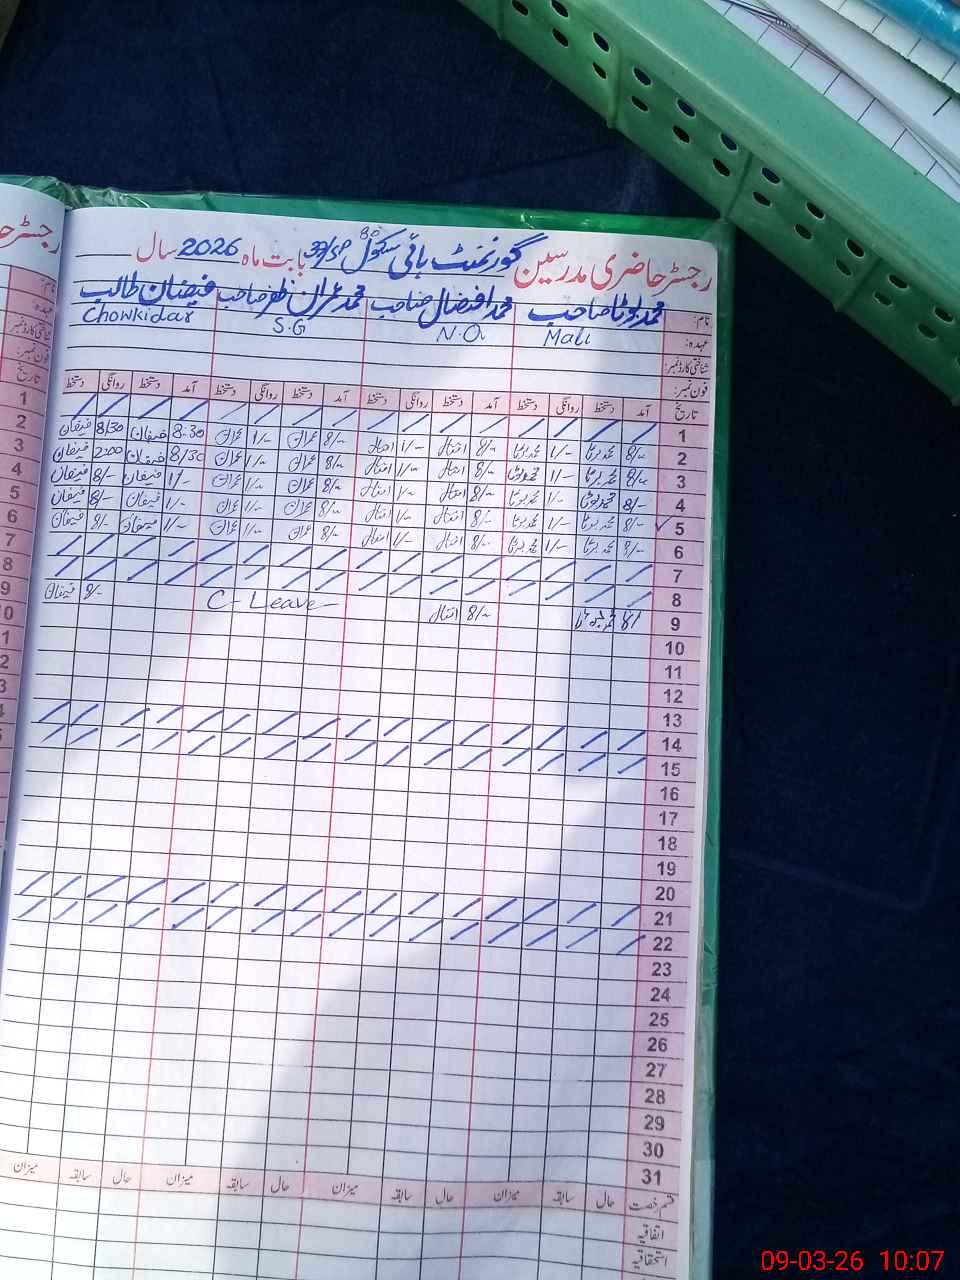 رجسٹر حاضری مدرسین گورنمنٹ ہائی سکول 39/SP بابت ماہ 2026 سال
نام: محمد بوٹا صاحب محمد افضال صاحب محمد عمران ظفر صاحب فیضان طالب
عہدہ: Mali N.Q. S.G Chowkidar
شناختی کارڈ نمبر:
فون نمبر:
تاریخ آمد دستخط روانگی دستخط آمد دستخط روانگی دستخط آمد دستخط روانگی دستخط آمد دستخط روانگی دستخط
1
2 8/- محمد بوٹا 1/- محمد بوٹا 8/- افضال 1/- افضال 8/- عمران 1/- عمران 8-30 فیضان 8/30 فیضان
3 8/- محمد بوٹا 1/- محمد بوٹا 8/- افضال 1/- افضال 8/- عمران 1/- عمران 8/30 فیضان 2:00 فیضان
4 8/- محمد بوٹا 1/- محمد بوٹا 8/- افضال 1/- افضال 8/- عمران 1/- عمران 1/- فیضان 8/- فیضان
5 8/- محمد بوٹا 1/- محمد بوٹا 8/- افضال 1/- افضال 8/- عمران 1/- عمران 1/- فیضان 8/- فیضان
6 8/- محمد بوٹا 1/- محمد بوٹا 8/- افضال 1/- افضال 8/- عمران 1/- عمران 1/- فیضان 8/- فیضان
7
8
9 8/ محمد بوٹا 8/- افضال C-Leave 8/- فیضان
10
11
12
13
14
15
16
17
18
19
20
21
22
23
24
25
26
27
28
29
30
31
قسم رخصت حال سابقہ میزان حال سابقہ میزان حال سابقہ میزان حال سابقہ میزان
اتفاقیہ
استحقاقیہ
رجسٹر حا
نام:
عہدہ:
شناختی کارڈ نمبر:
فون نمبر:
تاریخ
1
2
3
4
5
6
7
8
9
0
1
2
3
4
5
09-03-26 10:07